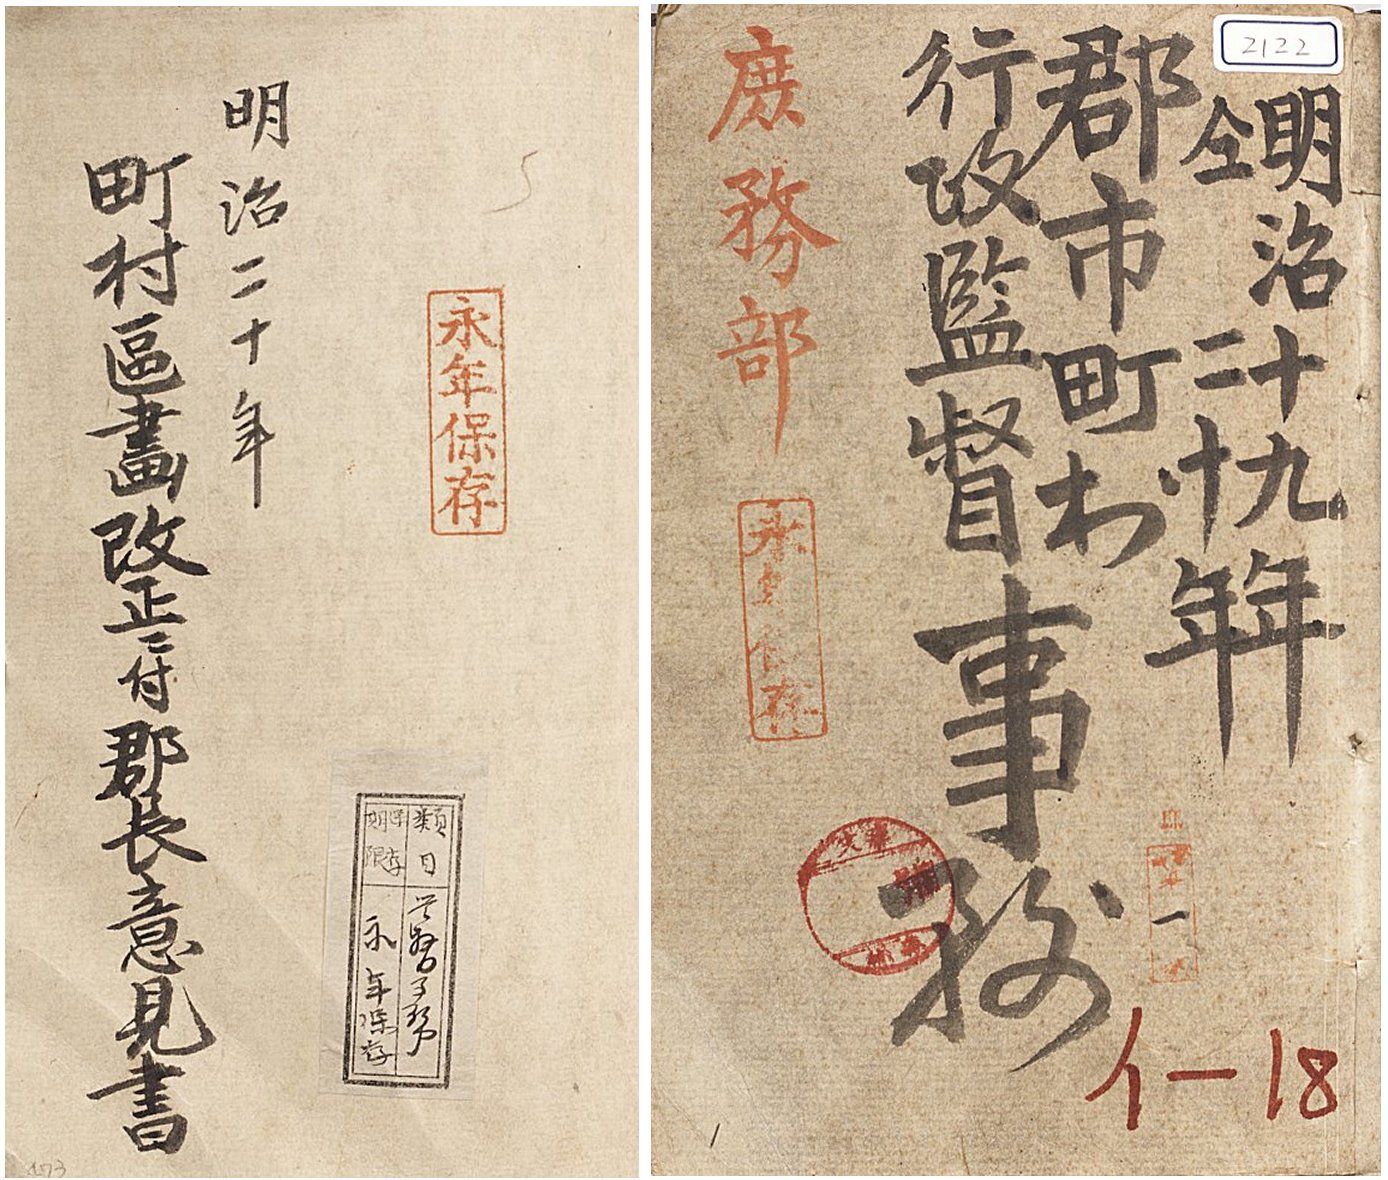 永年保存
類目
督事務
保存期限
永年保存
明治二十年
町村區畫改正ニ付郡長意見書
2122
明治十九年
仝二十年
郡市町村
行政監督事務
庶務部
永年保存
一
イー18